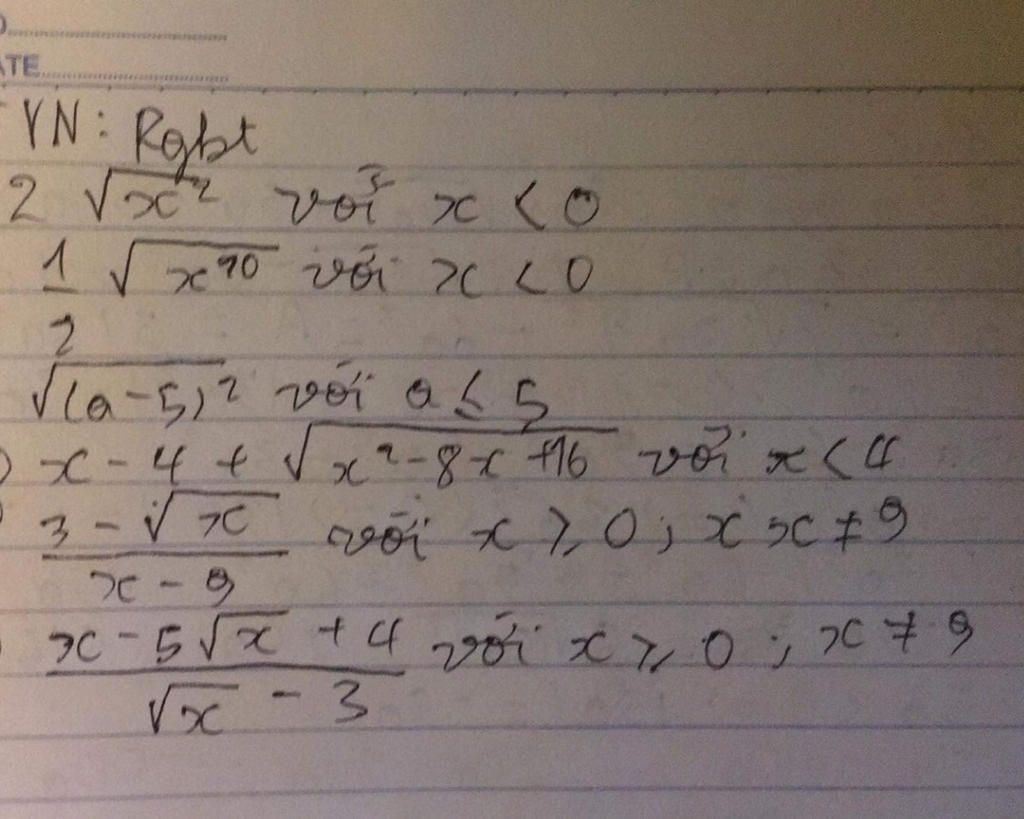 ATE
YN: Rgbt
2 √x² với x < 0
1/2 √x¹⁰ với x < 0
√(a-5)² với a ≤ 5
) x - 4 + √x² - 8x + 16 với x < 4
(3 - √x)/(x - 9) với x ≥ 0; x x ≠ 9
(x - 5√x + 4)/(√x - 3) với x ≥ 0; x ≠ 9